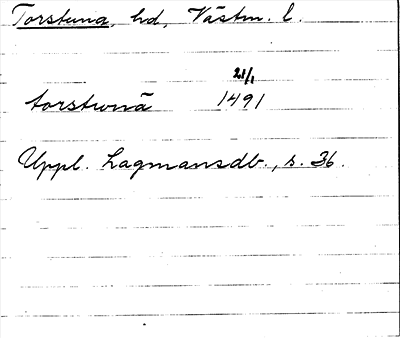 Torstuna, hd, Västm. l.
21/1
torstwnā 1491
Uppl. Lagmansdb., s. 36.